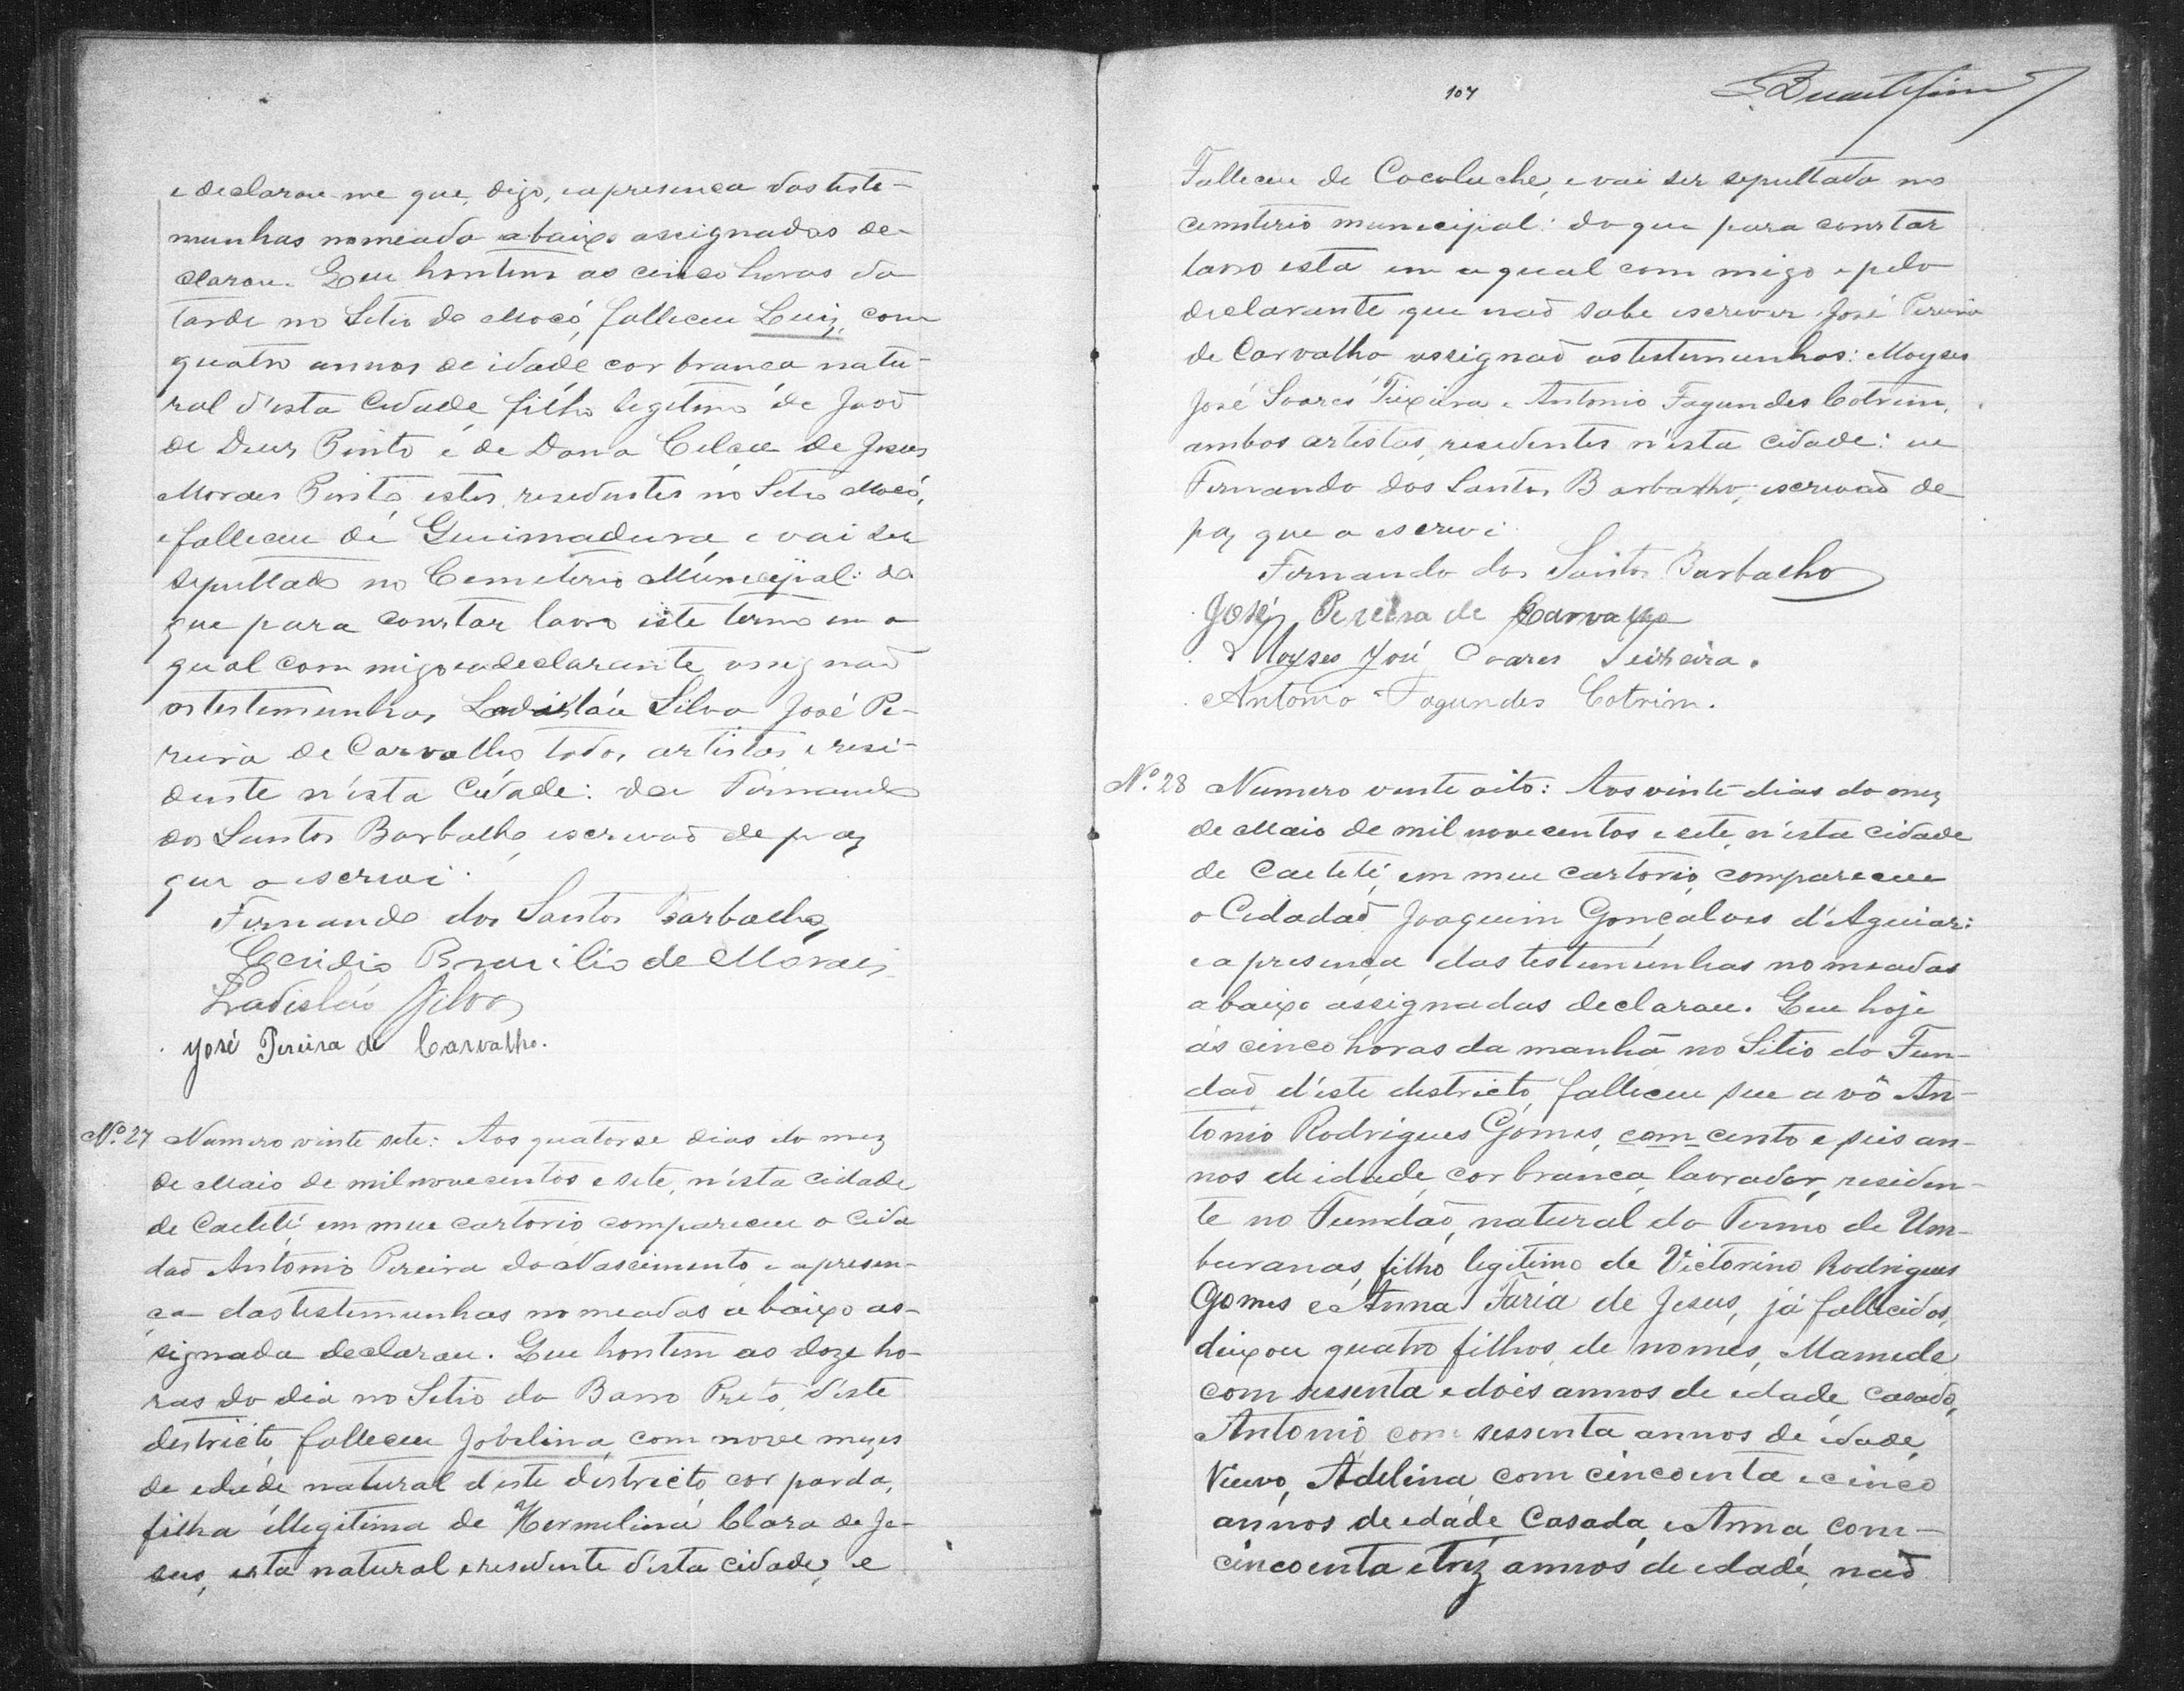 e declarou-me que, digo, e a presença das teste-
munhas nomeada abaixo assignadas de-
clarou. Que hontem as cinco horas da
tarde no Sitio do Mocó, falleceu Luiz, com
quatro annos de idade cor branca natu-
ral d'esta Cidade, filho legitimo de João
de Deus Pinto e de Dona de Jesus
Moraes Pinto, estes residentes no Sitio Mocó,
e falleceu de Queimadura, e vai ser
sepultado no Cemiterio Municipal: do
que para constar lavro este termo em o
qual commigo e o declarante assignaõ
as testemunhas, Ladisláu Silva José Pe-
reira de Carvalho, todos artistas, e resi-
dente n'esta Cidade: Fernando
dos Santos Barbalho, escrivaõ de paz
que o escrevi.
Fernando dos Santos Barbalho
Brasilio de Moraes
Ladisláo Silva
José Pereira de Carvalho.
Nº 27 Numero vinte sete: Aos quatorse dias do mez
de Maio de mil novecentos e sete, n'esta cidade
de Caeteté, em meu cartorio compareceu o Cida
daõ Antonio Pereira do Nascimento e a presen-
ça das testemunhas nomeadas abaixo as-
signada declarou. Que hontem as doze ho-
ras do dia no Sitio do Barro Preto, d'este
destricto, falleceu Jobelina, com nove mezes
de edade natural d'este districto, cor parda,
filha illegitima de Hermelina Clara de Je-
sus, esta natural e residente d'esta cidade, e
107
Falleceu de Cocoluche, e vai ser sepultada no
cemiterio municipal: do que para constar
lavro esta em a qual com migo e pelo
declarante que naõ sabe escrever José Pereira
de Carvalho assignaõ as testemunhas: Moyses
José Soares Teixeira e Antonio Fagundes Cotrim,
ambos artistas, residentes n'esta cidade: eu
Fernando dos Santos Barbalho, escrivaõ de
paz que a escrevi
Fernando dos Santos Barbalho
José Pereira de Carvalho
Moyses José Soares Teixeira.
Antonio Fagundes Cotrim.
Nº 28 Numero vinte oito: Aos vinte dias do mez
de Maio de mil novecentos e sete, n'esta cidade
de Caeteté, em meu cartorio, compareceu
o Cidadaõ Joaquim Gonçalves d'Aguiar:
e a presença das testemunhas nomeadas
abaixo assignadas declarou. Que hoje
ás cinco horas da manhã no Sitio do Fun-
daõ, d'este destricto, falleceu seu avô An-
tonio Rodrigues Gomes, com cento e seis an-
nos de idade, cor branca, lavrador, residen-
te no Fundaõ, natural do Termo de Um-
buranas, filho legitimo de Victorino Rodrigues
Gomes e Anna Faria de Jesus, já fallecidos,
deixou quatro filhos, de nomes, Mamede
com sessenta e dois annos de edade, casado,
Antonio, com sessenta annos de idade,
Viuvo, Adelina, com cincoenta e cinco
annos de edade, Casada, e Anna, com
cincoenta e trez annos de edade, naõ